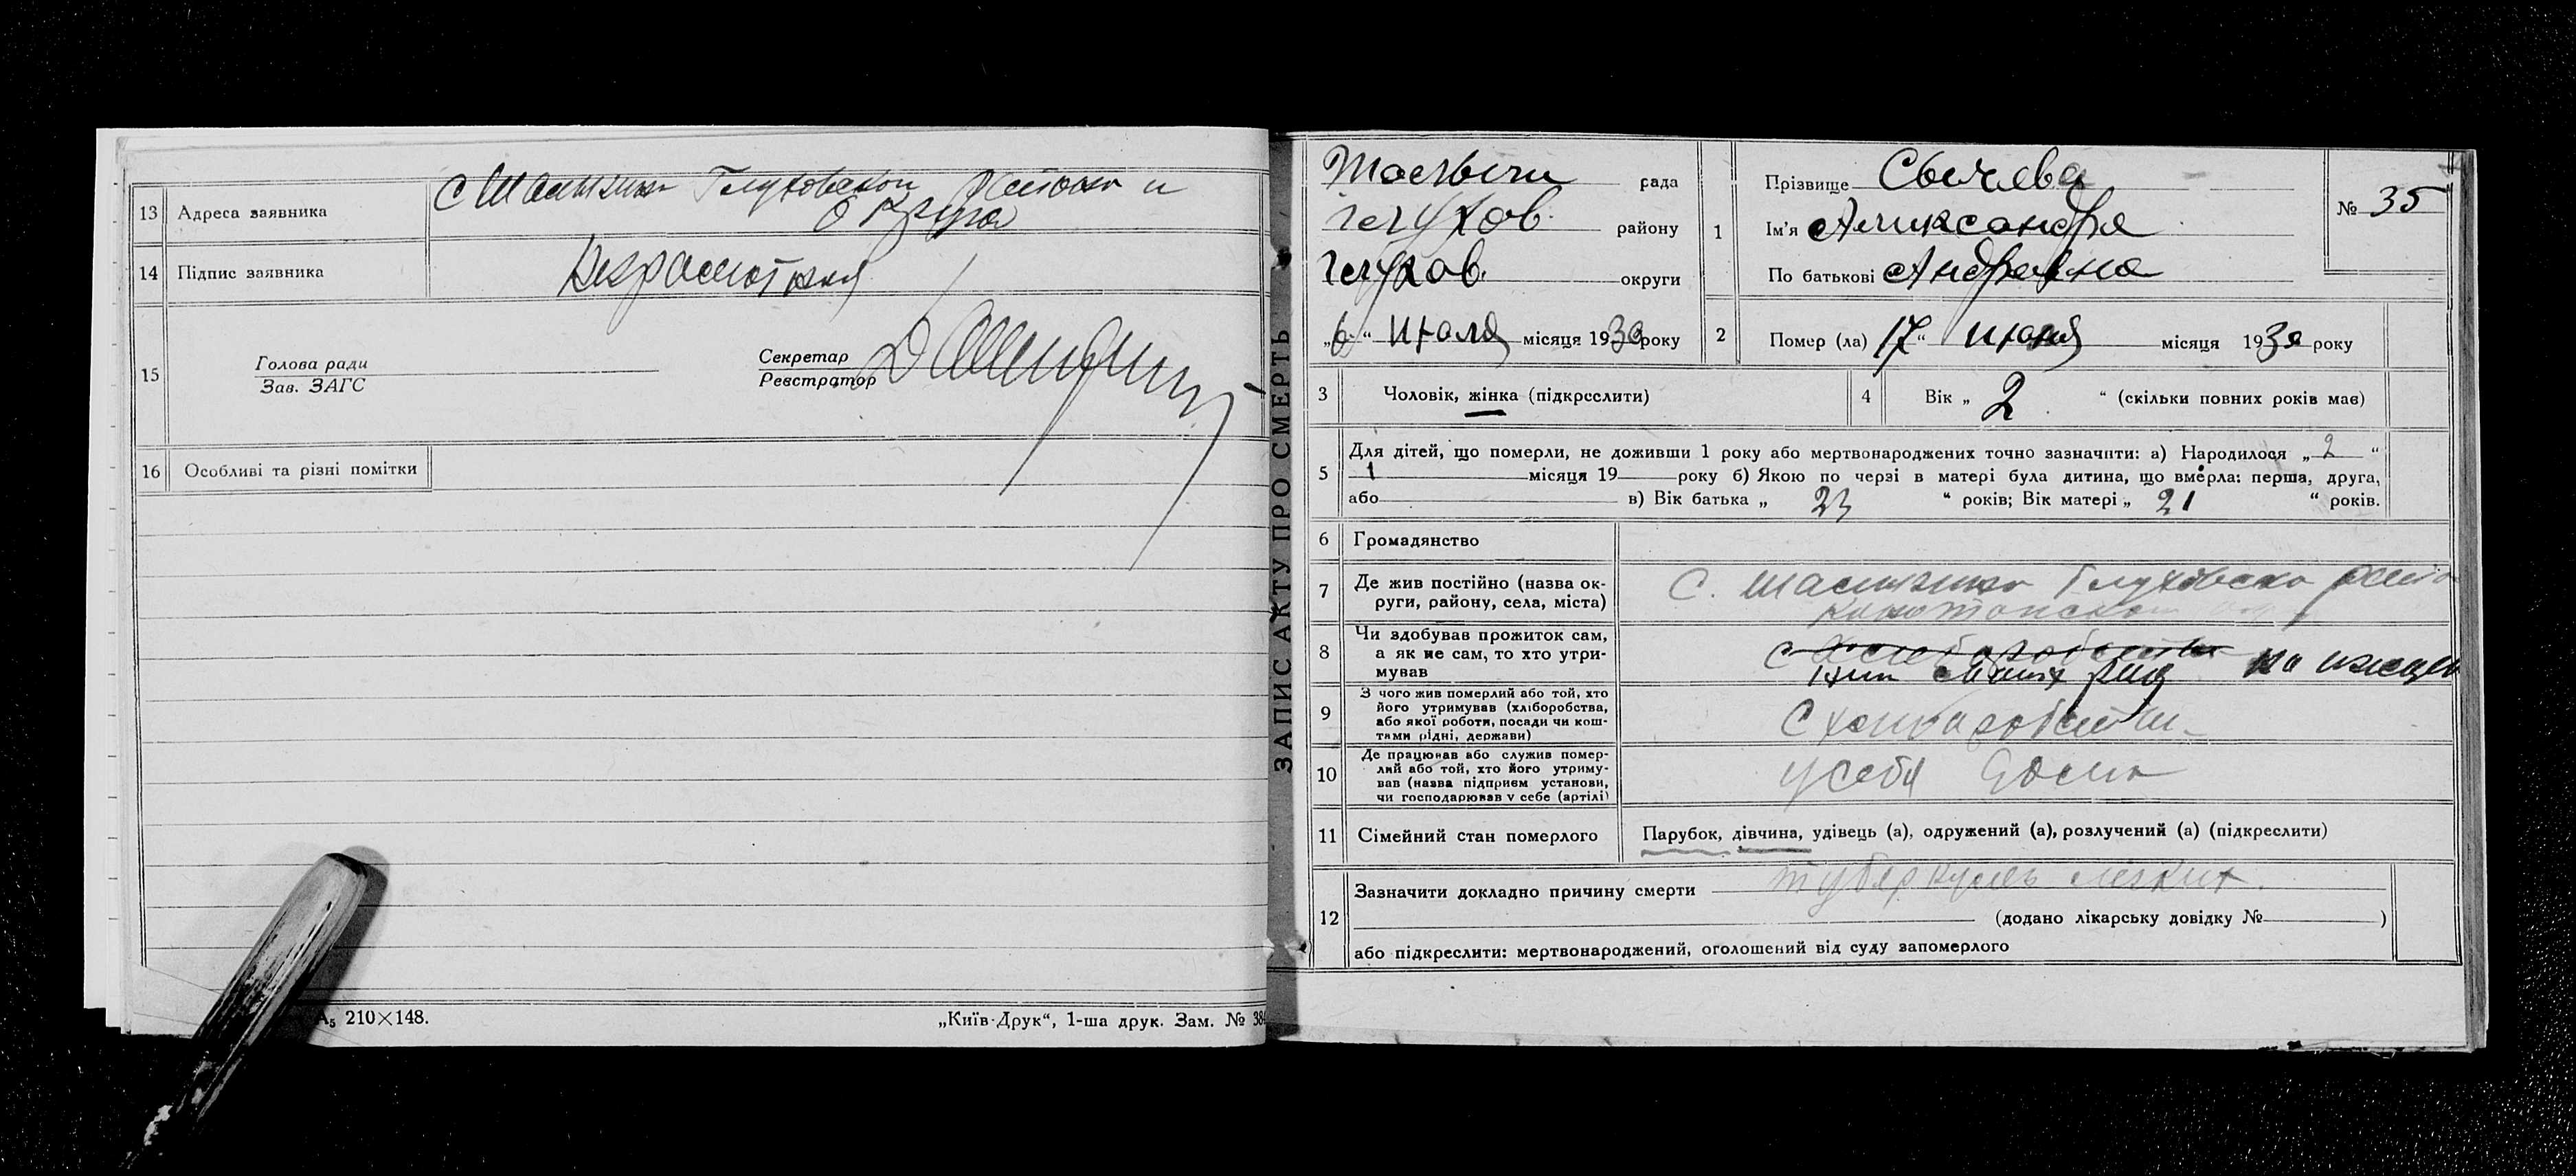 13 Адреса заявника с Шалигино Глуховского района и
округа
14 Підпис заявника неграмотная
15 Голова ради
Зав. ЗАГС
Секретар
Реєстратор
16 Особливі та різні помітки
А₅ 210×148.
„Київ-Друк“, 1-ша друк. Зам. № 38
ЗАПИС АКТУ ПРО СМЕРТЬ
рада
Глухов. району
Глухов. округи
„6“ июля місяця 1930 року
1 Прізвище Сычева
Ім'я Александра
По батькові Андреевна
№ 35
2 Помер (ла) 17 “ июня місяця 1930 року
3 Чоловік, жінка (підкреслити)
4 Вік „ 2 “ (скільки повних років має)
5 Для дітей, що померли, не доживши 1 року або мертвонароджених точно зазначити: а) Народилося „ 2 “
1 місяця 19 року б) Якою по черзі в матері була дитина, що вмерла: перша, друга,
або в) Вік батька „ 23 “ років; Вік матері „ 21 “ років.
6 Громадянство
7 Де жив постійно (назва ок-
руги, району, села, міста)
с. Шалигино Глуховско
Конотопско
8 Чи здобував прожиток сам,
а як не сам, то хто утри-
мував
на
9 З чого жив померлий або той, хто
його утримував (хліборобства,
або якої роботи, посади чи кош-
тами рідні, держави)
С
10 Де працював або служив помер-
лий або той, хто його утриму-
вав (назва підприєм установи,
чи господарював у себе (артілі)
у себя дома
11 Сімейний стан померлого
Парубок, дівчина, удівець (а), одружений (а), розлучений (а) (підкреслити)
12 Зазначити докладно причину смерти туберкулез легких.
(додано лікарську довідку № )
або підкреслити: мертвонароджений, оголошений від суду запомерлого